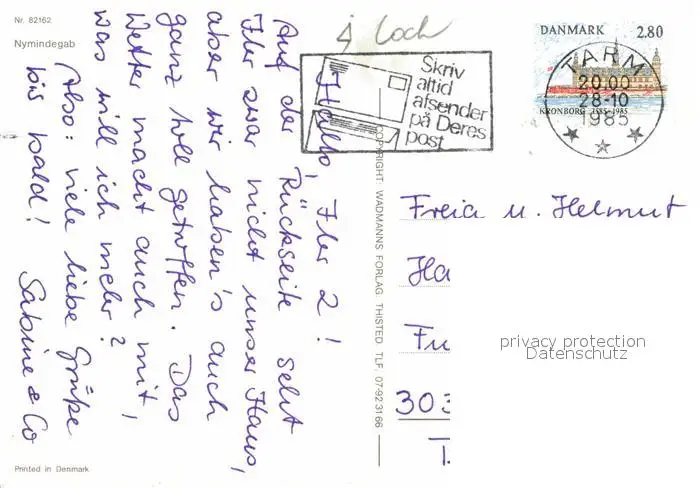 Nr. 82162
Nymindegab
Hallo, Ihr 2!
Auf der Rückseite seht
Ihr zwar nicht unser Haus,
aber wir haben's auch
ganz toll getroffen. Das
Wetter macht auch mit,
was will ich mehr?
Also: viele liebe Grüße
bis bald! Sabine & Co
Printed in Denmark
COPYRIGHT WADMANNS FORLAG THISTED TLF. 07-92 31 66
j Loch
Skriv
altid
afsender
på Deres
post
DANMARK 2.80
TARM
20.00
28-10
1985
KRONBORG 1585-1985
Freia u. Helmut
Ha
Fu
privacy protection
Datenschutz
303
T.